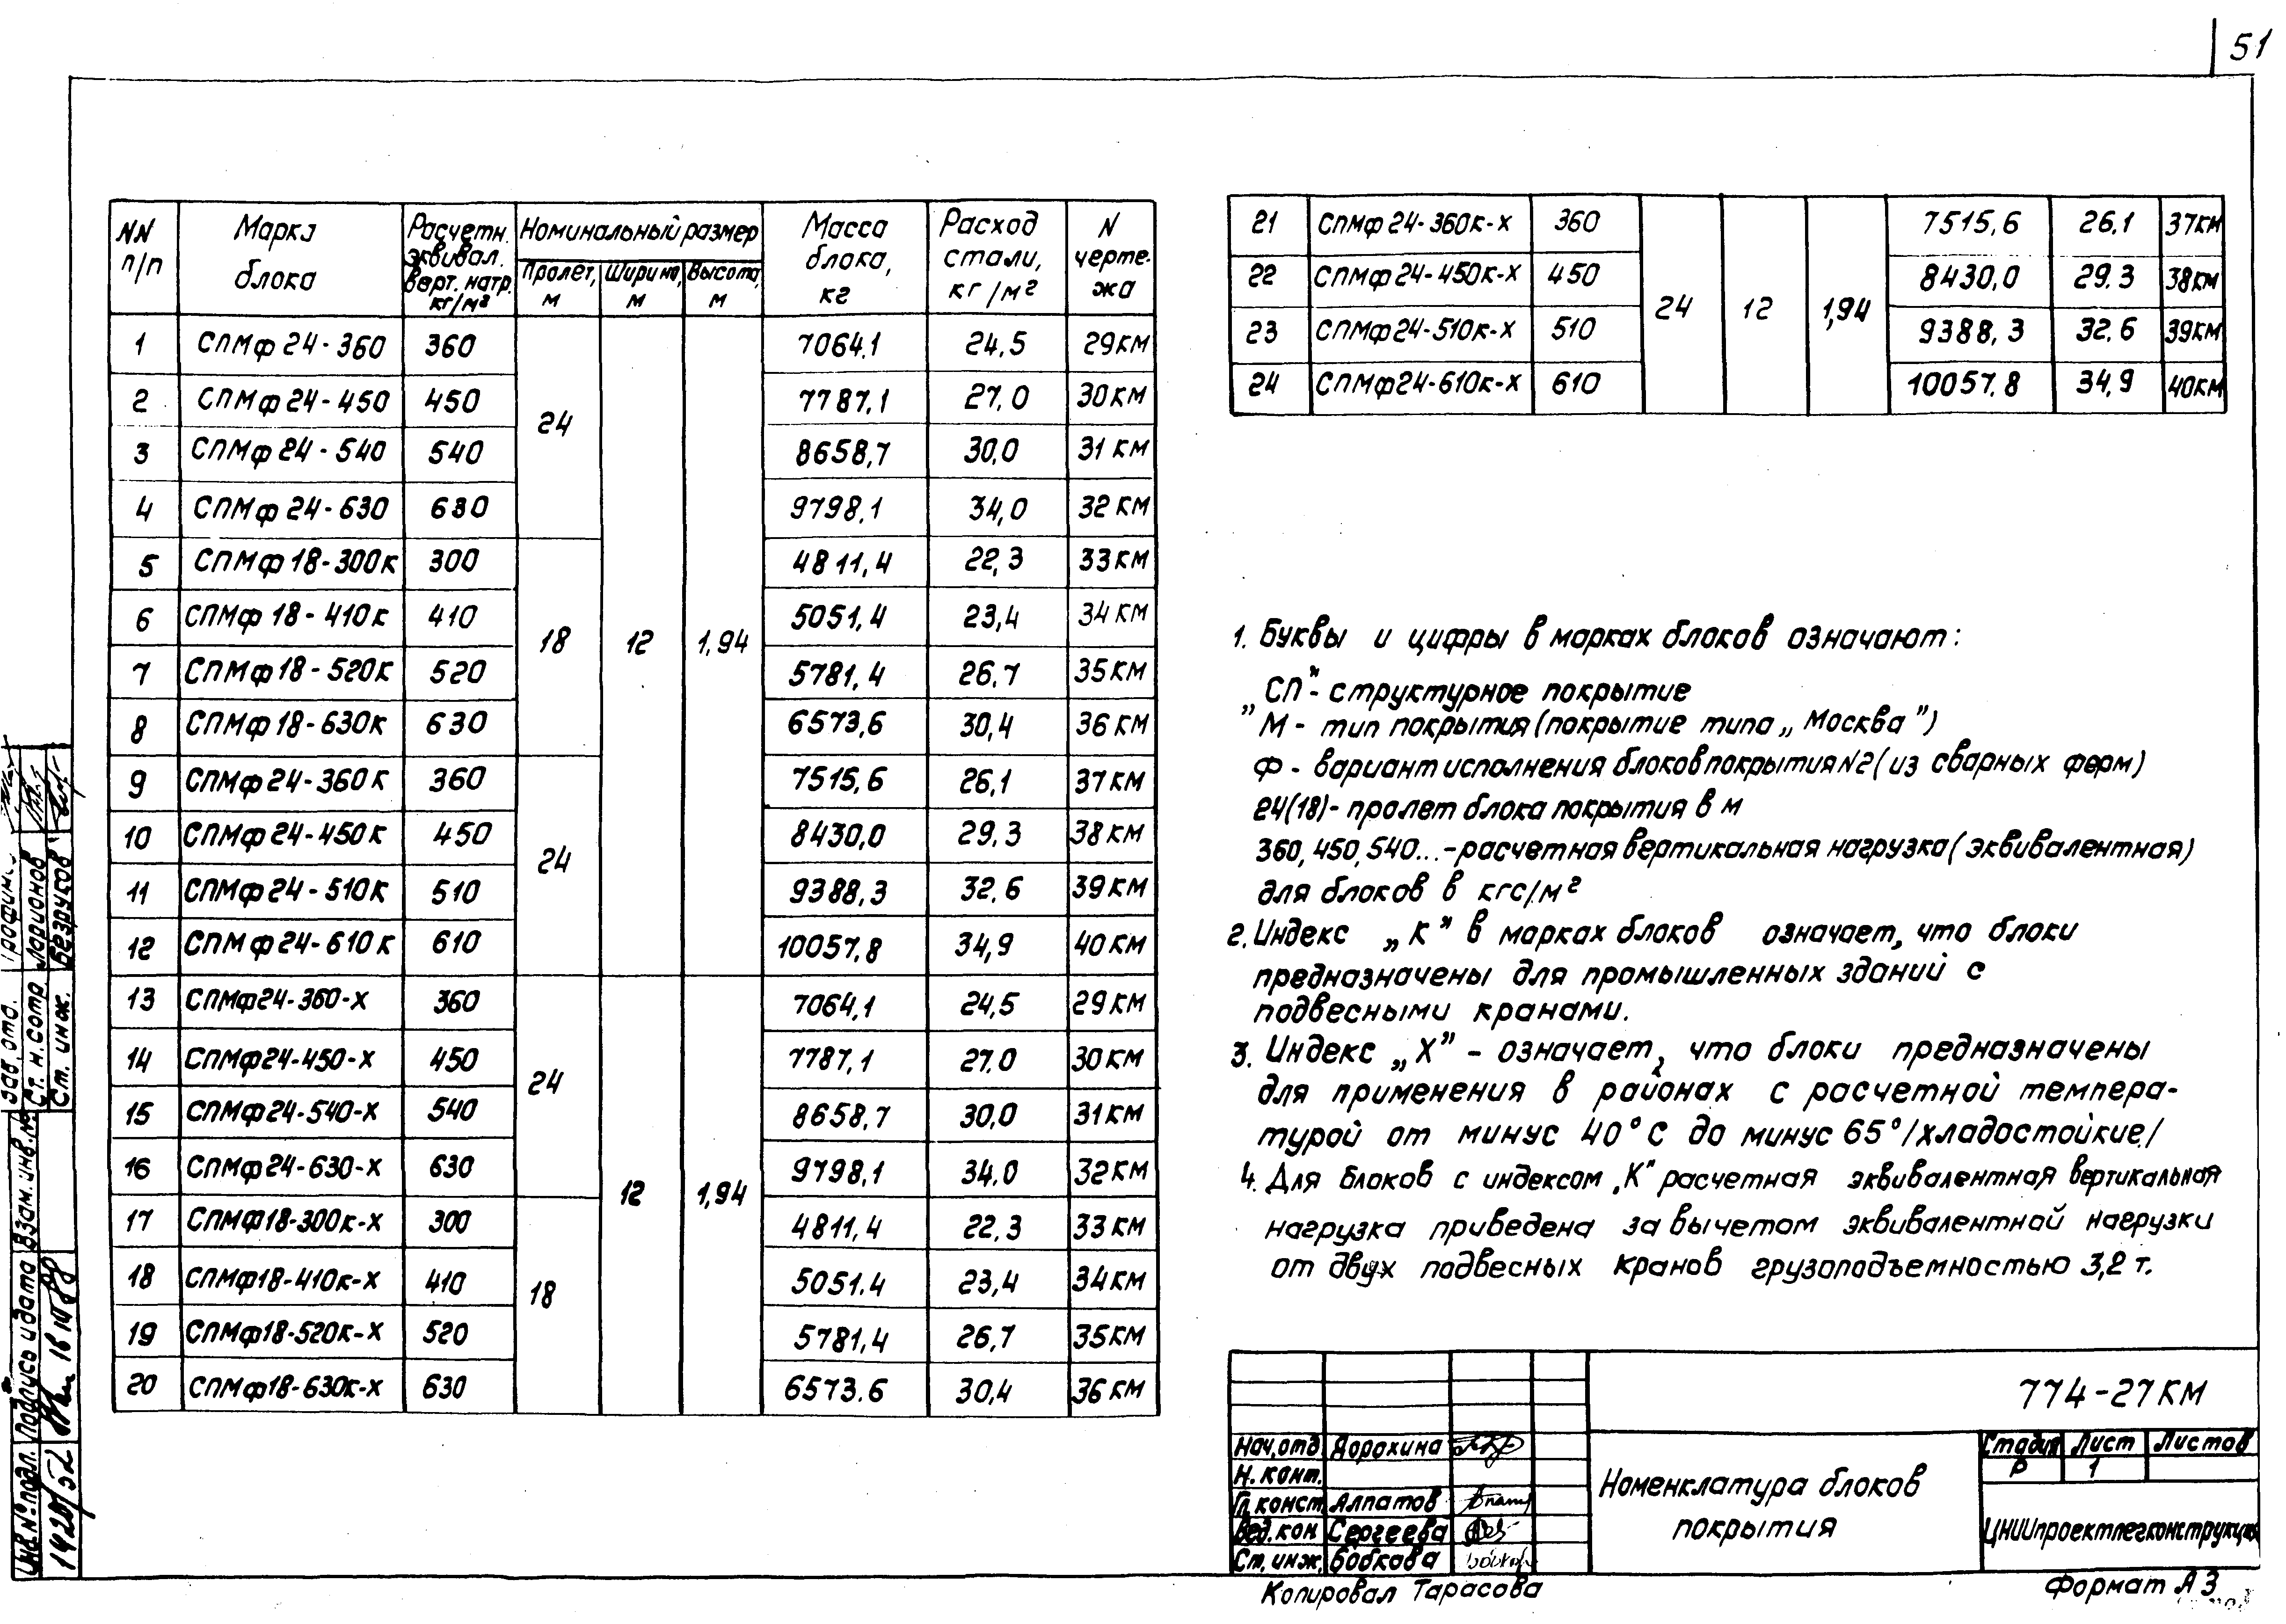 51
NN п/п | Марка блока | Расчетн. эквивал. верт. нагр. кг/м² | Номинальный размер | Масса блока, кг | Расход стали, кг/м² | N чертежа
Пролет, м | Ширина, м | Высота, м
1 СПМф 24-360 360 24 12 1,94 7064,1 24,5 29КМ
2 СПМф 24-450 450 7787,1 27,0 30КМ
3 СПМф 24-540 540 8658,7 30,0 31КМ
4 СПМф 24-630 630 9798,1 34,0 32КМ
5 СПМф 18-300к 300 18 4811,4 22,3 33КМ
6 СПМф 18-410к 410 5051,4 23,4 34КМ
7 СПМф 18-520к 520 5781,4 26,7 35КМ
8 СПМф 18-630к 630 6573,6 30,4 36КМ
9 СПМф 24-360к 360 24 7515,6 26,1 37КМ
10 СПМф 24-450к 450 8430,0 29,3 38КМ
11 СПМф 24-510к 510 9388,3 32,6 39КМ
12 СПМф 24-610к 610 10057,8 34,9 40КМ
13 СПМф24-360-Х 360 24 12 1,94 7064,1 24,5 29КМ
14 СПМф24-450-Х 450 7787,1 27.0 30КМ
15 СПМф24-540-Х 540 8658,7 30,0 31КМ
16 СПМф24-630-Х 630 9798,1 34,0 32КМ
17 СПМф18-300к-Х 300 18 4811,4 22,3 33КМ
18 СПМф18-410к-Х 410 5051.4 23,4 34КМ
19 СПМф18-520к-Х 520 5781,4 26,7 35КМ
20 СПМф18-630к-Х 630 6573.6 30,4 36КМ
21 СПМф 24-360к-Х 360 24 12 1,94 7515,6 26,1 37КМ
22 СПМф 24-450к-Х 450 8430,0 29.3 38КМ
23 СПМф24-510к-Х 510 9388,3 32,6 39КМ
24 СПМф24-610к-Х 610 10057,8 34,9 40КМ
1. Буквы и цифры в марках блоков означают:
„СП"- структурное покрытие
"М - тип покрытия (покрытие типа „Москва")
Ф - вариант исполнения блоков покрытия N2 (из сварных ферм)
24(18)- пролет блока покрытия в м
360, 450, 540...-расчетная вертикальная нагрузка (эквивалентная)
для блоков в кгс/м²
2. Индекс „К" в марках блоков означает, что блоки
предназначены для промышленных зданий с
подвесными кранами.
3. Индекс „Х" - означает, что блоки предназначены
для применения в районах с расчетной темпера-
турой от минус 40°С до минус 65°/хладостойкие/
4. Для блоков с индексом „К" расчетная эквивалентная вертикальная
нагрузка приведена за вычетом эквивалентной нагрузки
от двух подвесных кранов грузоподъемностью 3,2 т.
774-27КМ
Нач.отд. Дорохина
Н. конт.
Гл. конст. Алпатов
Вед. кон. Сергеева
Ст. инж. Бобкова
Номенклатура блоков
покрытия
Стадия Лист Листов
Р 1
ЦНИИпроектлегконструкция
Копировал Тарасова
Формат А3
Зав. отд.
Ст. н. сотр. Ларионов
Ст. инж. Безруков
Взам. инв. №
Подпись и дата
Инв. № подл.